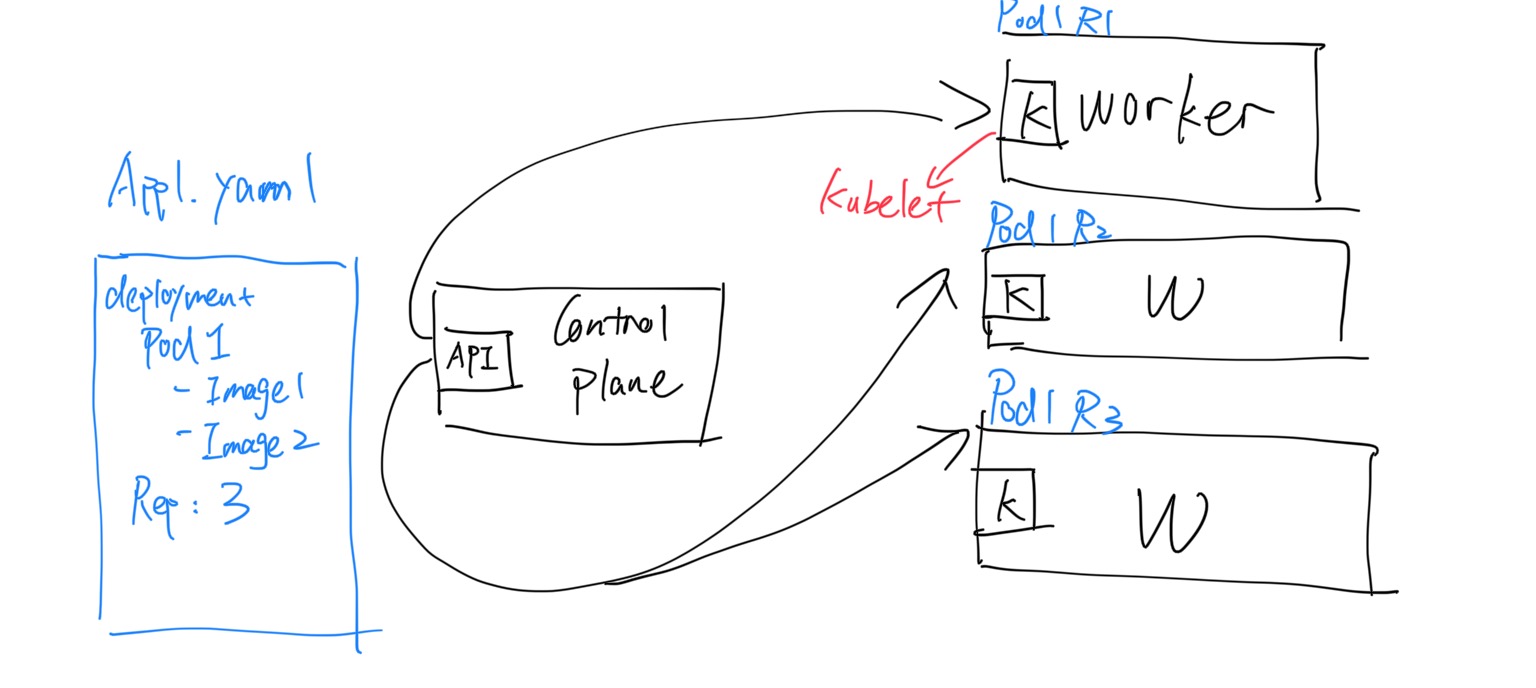 App1.yaml
deployment
Pod 1
- Image 1
- Image 2
Rep: 3
API
Control
plane
Pod 1 R1
K Worker
Kubelet
Pod 1 R2
K W
Pod 1 R3
K W